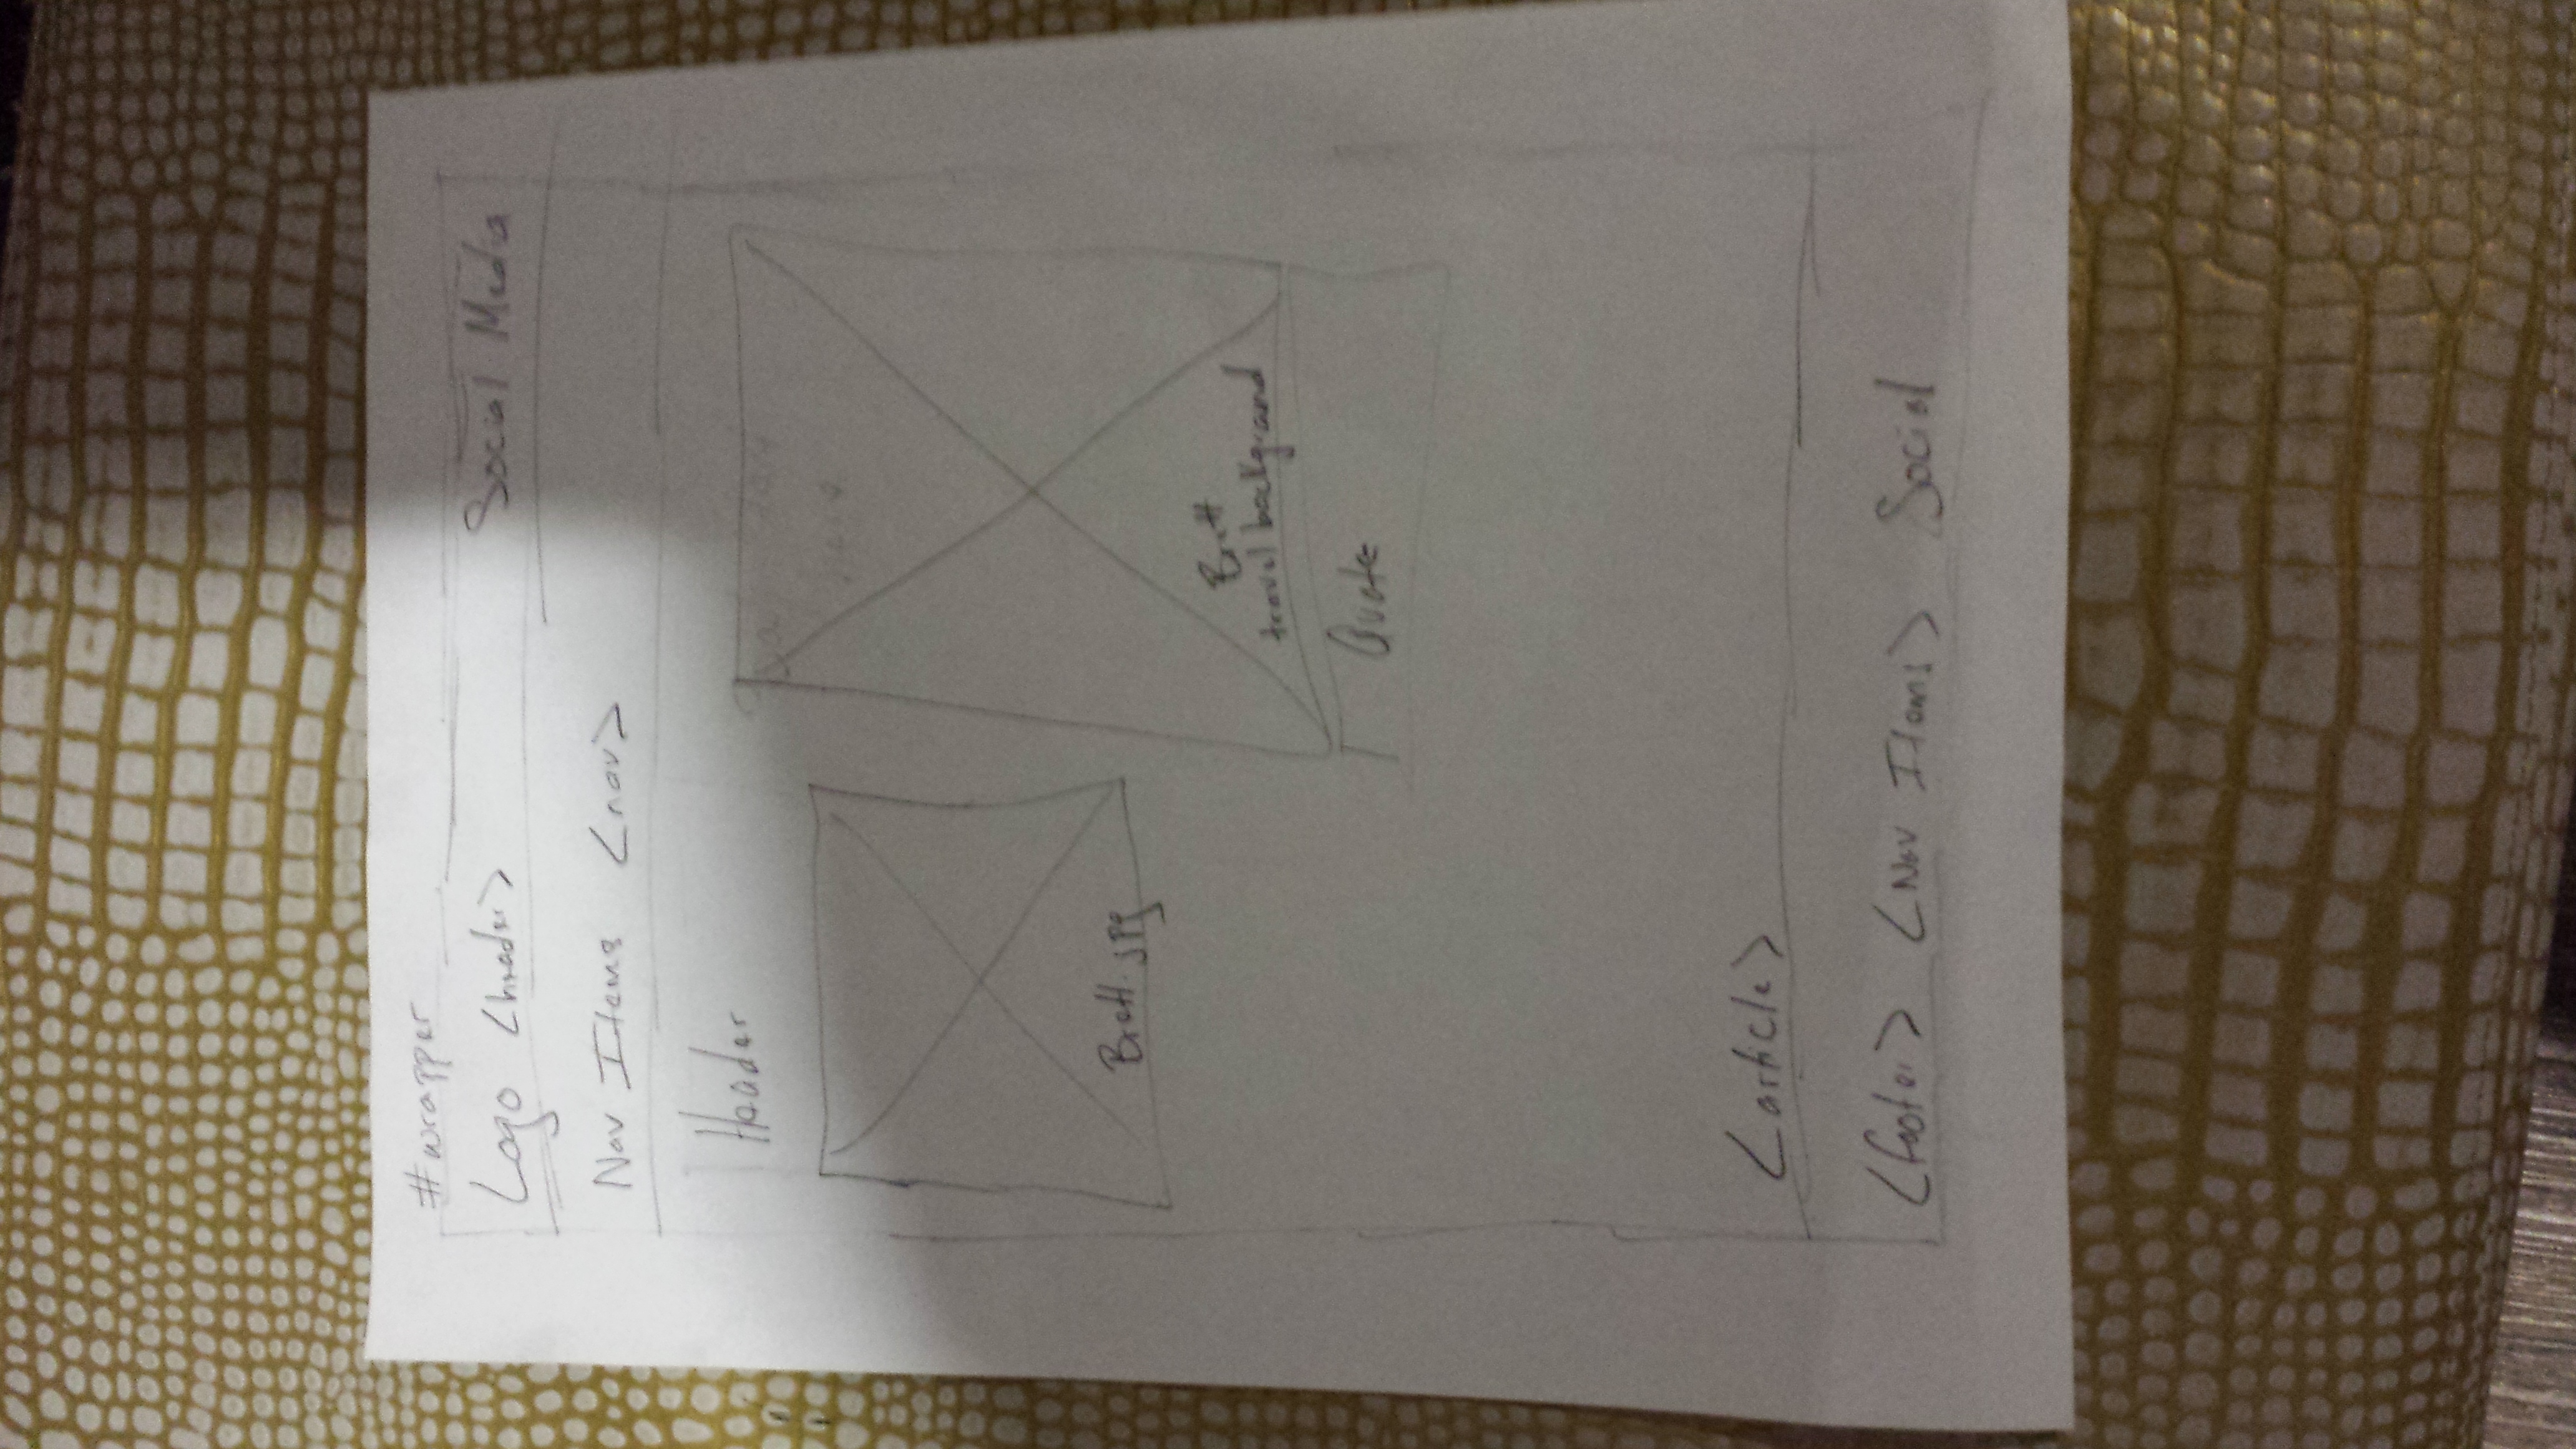 #wrapper
Logo <header> Social Media
Nav Items <nav>
Header
Brett.jpg
Brett
travel background
Quote
<article>
<footer> <Nov Items> Social